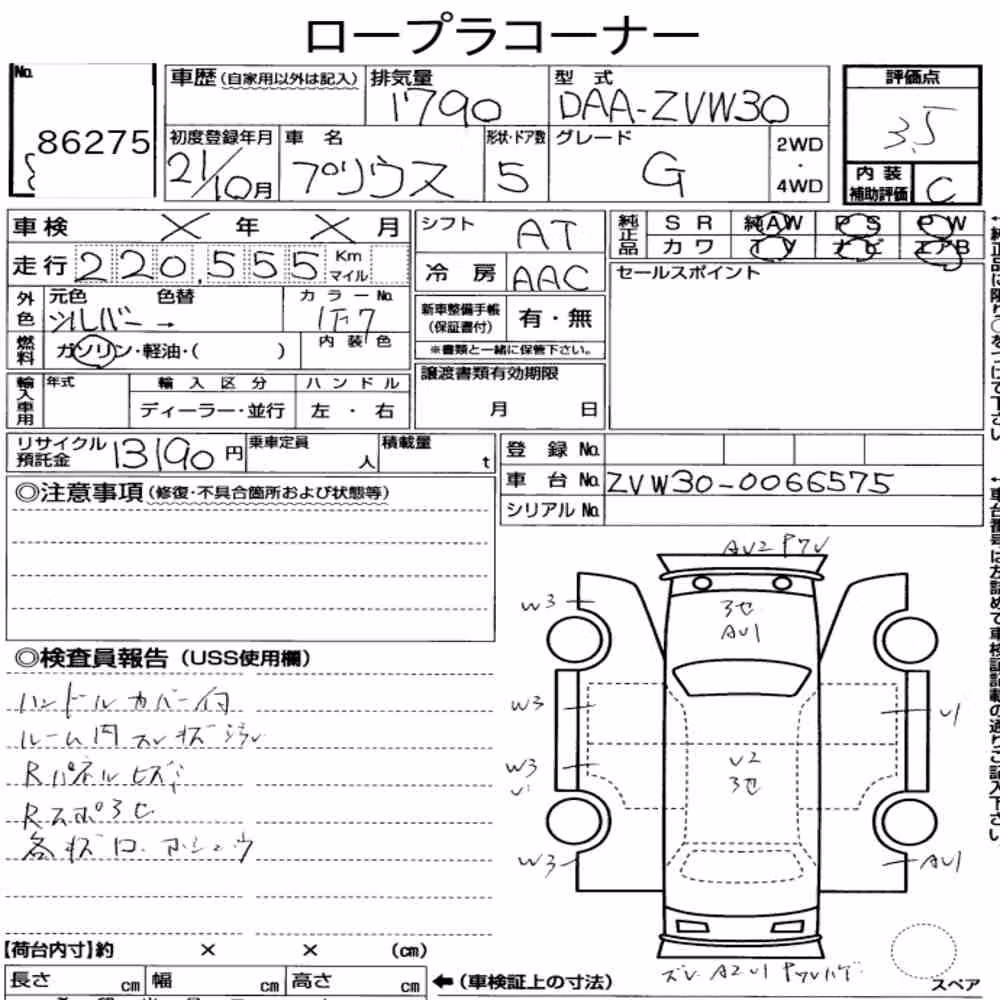 ロープラコーナー
No. 86275
車歴(自家用以外は記入) 排気量 1790 型式 DAA-ZVW30 評価点 3.5
初度登録年月 21/10月 車名 プリウス 形状・ドア数 5 グレード G 2WD・4WD 内装補助評価 C
車検 × 年 × 月 シフト AT 純正品 SR 純AW PS PW
走行 220,555 Km マイル 冷房 AAC カワ TV ナビ エアB
外色 元色 シルバー → 色替 カラーNo. 1F7 新車整備手帳(保証書付) 有・無 セールスポイント
燃料 ガソリン・軽油・( ) 内装色 ※書類と一緒に保管下さい。
輸入車用 年式 輸入区分 ハンドル 譲渡書類有効期限
ディーラー・並行 左・右 月 日
リサイクル預託金 13190円 乗車定員 人 積載量 t 登録No.
車台No. ZVW30-0066575
シリアルNo.
◎注意事項(修復・不具合箇所および状態等)
◎検査員報告(USS使用欄)
ハンドルカバー付
ルーム内スレキズ汚レ
Rパネルヒズミ
Rスポ3セ
各キズ
AU2 ワレ
3セ
AU1
W3
W3
U1
W3
U1
U2
3セ
W3
AU1
ズレ A2 U1
【荷台内寸】約 × × (cm)
長さ cm 幅 cm 高さ cm ←(車検証上の寸法)
スペア
←純正品に限り○をつけて下さい
←車台番号は左詰めで車検証記載の通りご記入下さい。